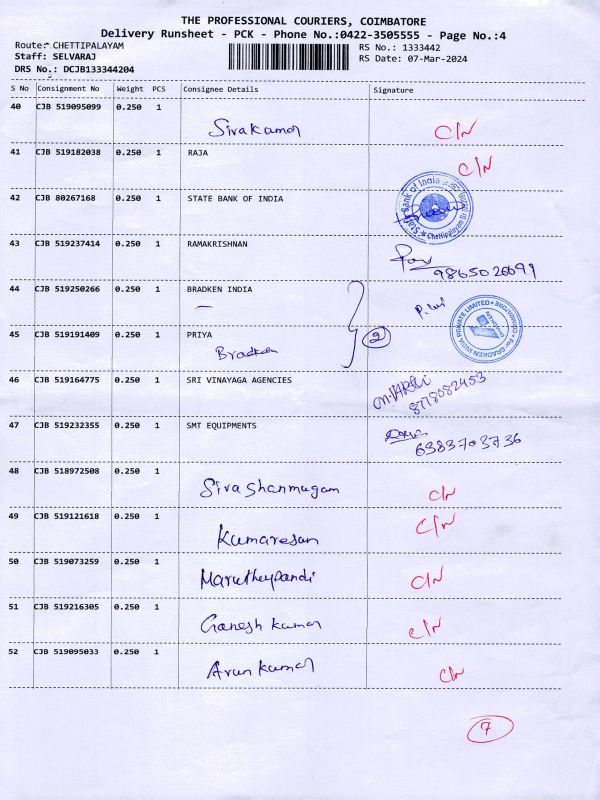 THE PROFESSIONAL COURIERS, COIMBATORE
Delivery Runsheet - PCK - Phone No.:0422-3505555 - Page No.:4
Route: CHETTIPALAYAM RS No.: 1333442
Staff: SELVARAJ RS Date: 07-Mar-2024
DRS No.: DCJB133344204
S No Consignment No Weight PCS Consignee Details Signature
40 CJB 519095099 0.250 1
Sivakamor C/N
41 CJB 519182038 0.250 1 RAJA C/N
42 CJB 80267168 0.250 1 STATE BANK OF INDIA
State Bank of India Chettipalayam Br
43 CJB 519237414 0.250 1 RAMAKRISHNAN
9865026699
44 CJB 519250266 0.250 1 BRADKEN INDIA
2
For BRADKEN INDIA PRIVATE LIMITED COIMBATORE BRADKEN
45 CJB 519191409 0.250 1 PRIYA
Bradken
46 CJB 519164775 0.250 1 SRI VINAYAGA AGENCIES
8778082453
47 CJB 519232355 0.250 1 SMT EQUIPMENTS
6383703736
48 CJB 518972508 0.250 1
Siva Shanmugam C/N
49 CJB 519121618 0.250 1 C/N
Kumaresan
50 CJB 519073259 0.250 1
Maruthupandi C/N
51 CJB 519216305 0.250 1
Ganesh kumar C/N
52 CJB 519095033 0.250 1
Arun kumar C/N
7